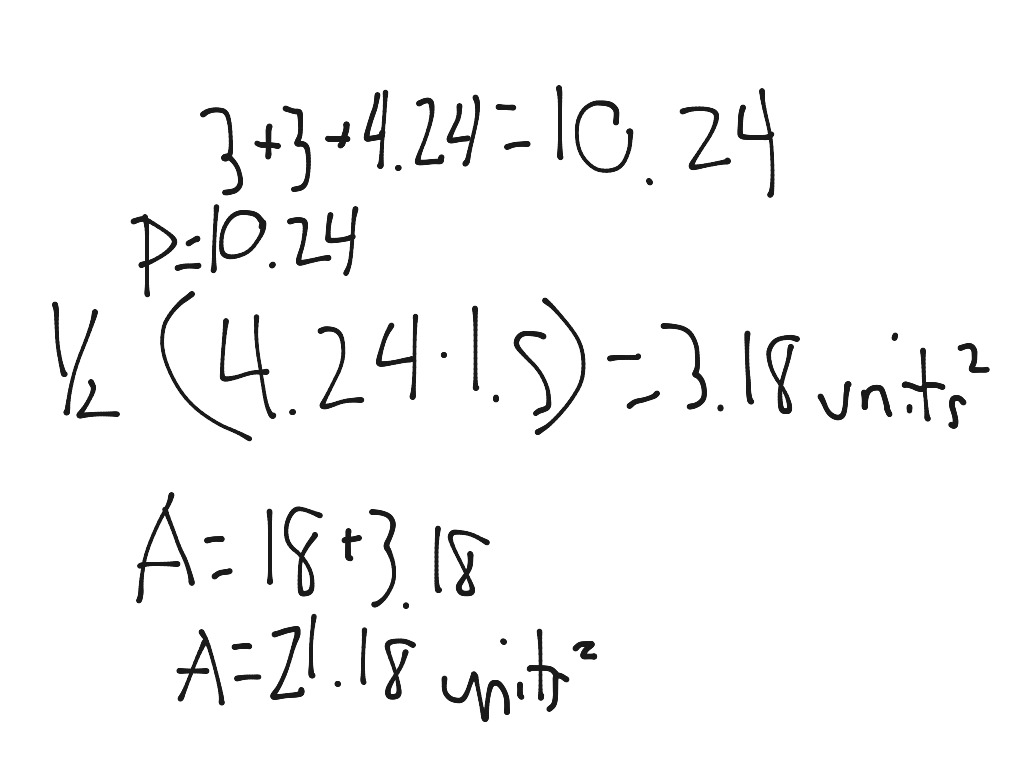 3+3+4.24=10.24
P=10.24
1/2 (4.24·1.5)=3.18 units²
A=18+3.18
A=21.18 units²